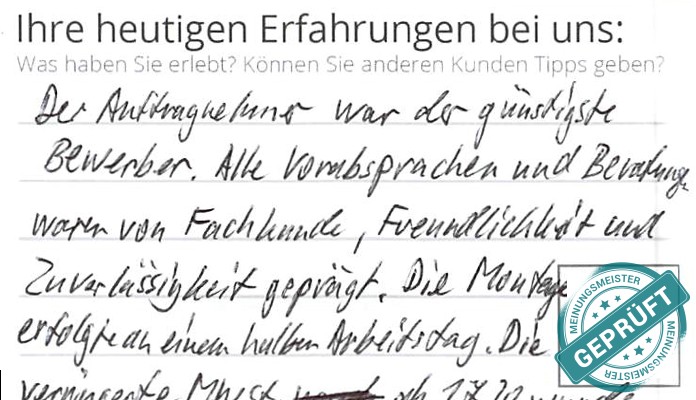 Ihre heutigen Erfahrungen bei uns:
Was haben Sie erlebt? Können Sie anderen Kunden Tipps geben?
Der Auftragnehmer war der günstigste
Bewerber. Alle Vorabsprachen und Beratungen
waren von Fachkunde, Freundlichkeit und
Zuverlässigkeit geprägt. Die Montage
erfolgte an einem halben Arbeitstag. Die
MEINUNGSMEISTER
GEPRÜFT
MEINUNGSMEISTER
MwSt.